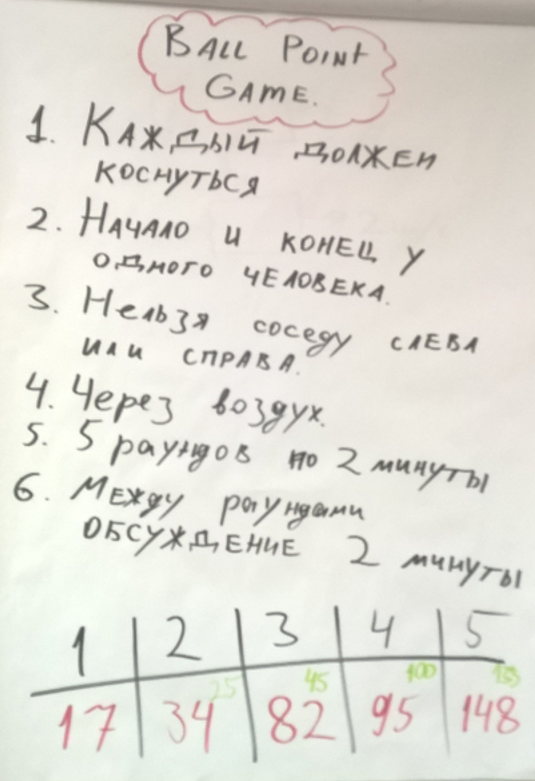 BALL POINT
GAME.
1. КАЖДЫЙ ДОЛЖЕН
КОСНУТЬСЯ
2. НАЧАЛО И КОНЕЦ У
ОДНОГО ЧЕЛОВЕКА.
3. Нельзя соседу слева
или справа.
4. Через воздух.
5. 5 раундов по 2 минуты
6. Между раундами
ОБСУЖДЕНИЕ 2 минуты
1 2 3 4 5
25 45 100
17 34 82 95 148